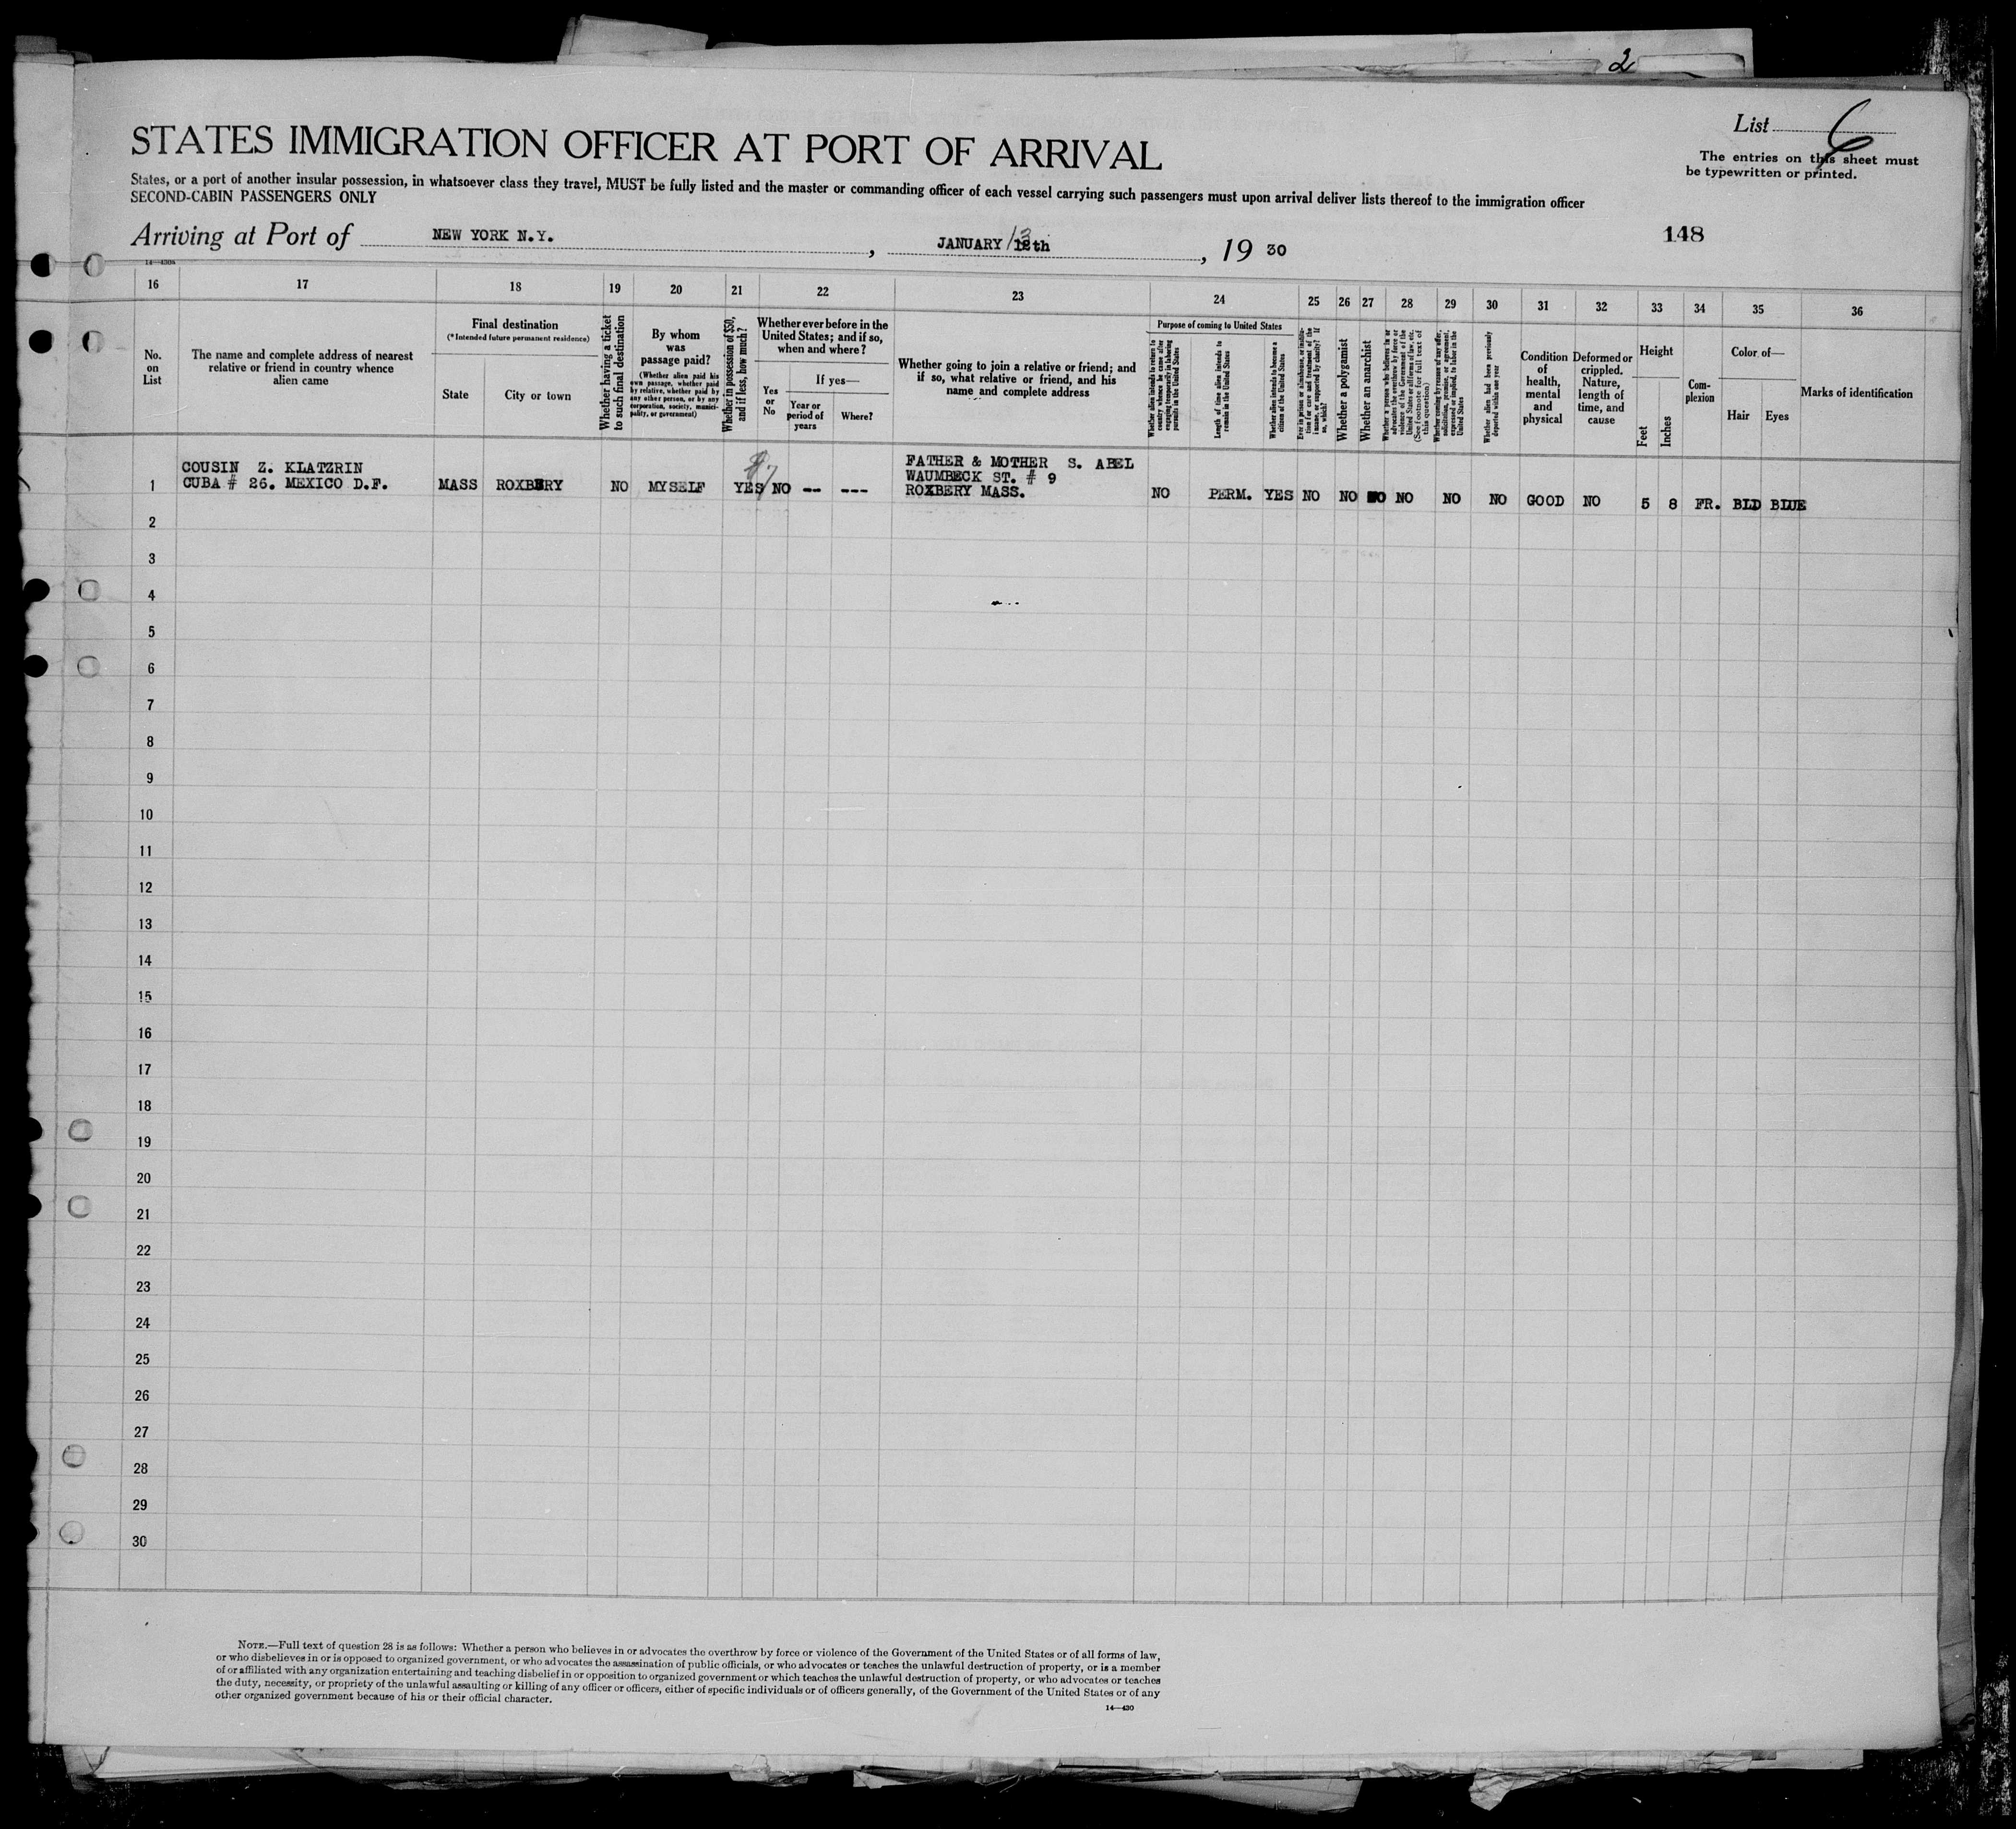 2
List 6
The entries on this sheet must
be typewritten or printed.
STATES IMMIGRATION OFFICER AT PORT OF ARRIVAL
States, or a port of another insular possession, in whatsoever class they travel, MUST be fully listed and the master or commanding officer of each vessel carrying such passengers must upon arrival deliver lists thereof to the immigration officer
SECOND-CABIN PASSENGERS ONLY
Arriving at Port of NEW YORK N.Y. , JANUARY 13 12th , 19 30
148
14—430A
16 17 18 19 20 21 22 23 24 25 26 27 28 29 30 31 32 33 34 35 36
No.
on
List
The name and complete address of nearest
relative or friend in country whence
alien came
Final destination
(*Intended future permanent residence)
State City or town
Whether having a ticket
to such final destination
By whom
was
passage paid?
(Whether alien paid his
own passage, whether paid
by relative, whether paid by
any other person, or by any
corporation, society, munici-
pality, or government)
Whether in possession of $50,
and if less, how much?
Whether ever before in the
United States; and if so,
when and where?
Yes
or
No
If yes—
Year or
period of
years
Where?
Whether going to join a relative or friend; and
if so, what relative or friend, and his
name and complete address
Purpose of coming to United States
Whether alien intends to return to
country whence he came after
engaging temporarily in laboring
pursuits in the United States
Length of time alien intends to
remain in the United States
Whether alien intends to become a
citizen of the United States
Ever in prison or almshouse, or institu-
tion for care and treatment of the
insane, or supported by charity? If
so, which?
Whether a polygamist
Whether an anarchist
Whether a person who believes in or
advocates the overthrow by force or
violence of the Government of the
United States or all forms of law, etc.
(See footnote for full text of
this question)
Whether coming by reason of any offer,
solicitation, promise, or agreement,
expressed or implied, to labor in the
United States
Whether alien had been previously
deported within one year
Condition
of
health,
mental
and
physical
Deformed or
crippled.
Nature,
length of
time, and
cause
Height
Feet
Inches
Com-
plexion
Color of—
Hair Eyes
Marks of identification
COUSIN Z. KLATZRIN
FATHER & MOTHER S. ABEL
WAUMBECK ST. # 9
1 CUBA # 26. MEXICO D.F. MASS ROXBERY NO MYSELF YES NO -- --- ROXBERY MASS. NO PERM. YES NO NO NO NO NO NO GOOD NO 5 8 FR. BLD BLUE
2
3
4
5
6
7
8
9
10
11
12
13
14
15
16
17
18
19
20
21
22
23
24
25
26
27
28
29
30
NOTE.—Full text of question 28 is as follows: Whether a person who believes in or advocates the overthrow by force or violence of the Government of the United States or of all forms of law,
or who disbelieves in or is opposed to organized government, or who advocates the assassination of public officials, or who advocates or teaches the unlawful destruction of property, or is a member
of or affiliated with any organization entertaining and teaching disbelief in or opposition to organized government or which teaches the unlawful destruction of property, or who advocates or teaches
the duty, necessity, or propriety of the unlawful assaulting or killing of any officer or officers, either of specific individuals or of officers generally, of the Government of the United States or of any
other organized government because of his or their official character.
14—430